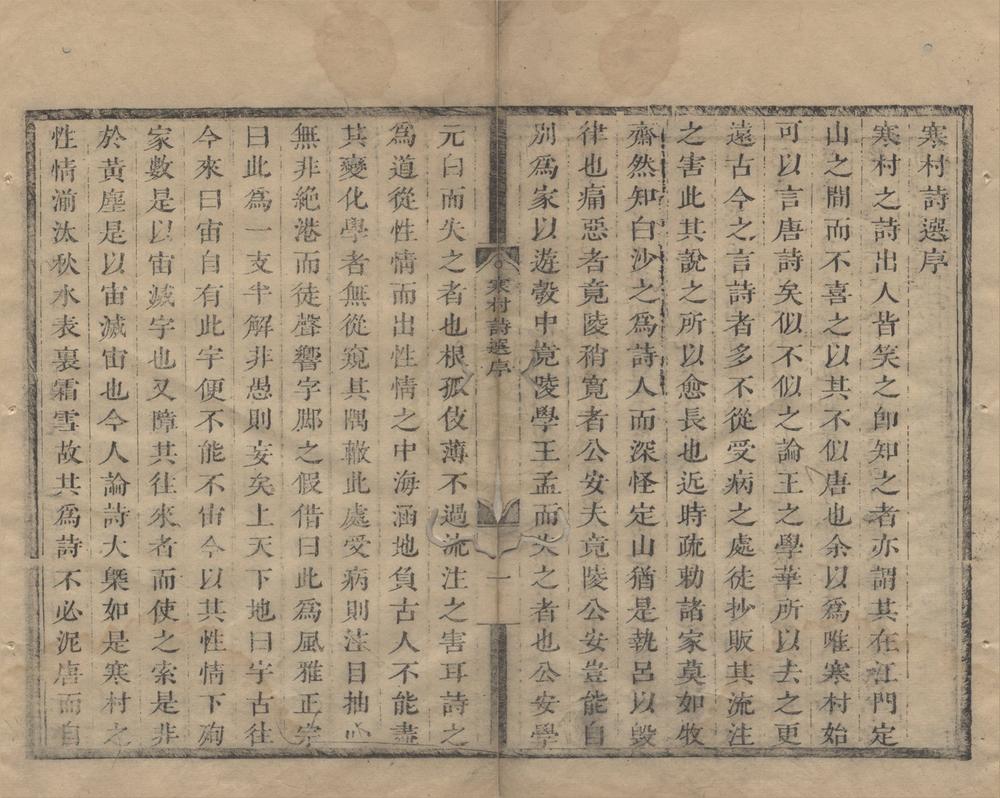 寒村詩選序
寒村之詩出人皆笑之卽知之者亦謂其在江門定
山之間而不喜之以其不似唐也余以爲唯寒村始
可以言唐詩矣似不似之論王之學華所以去之更
遠古今之言詩者多不從受病之處徒抄販其流注
之害此其說之所以愈長也近時疏勅諸家莫如牧
齋然知白沙之爲詩人而深怪定山猶是執呂以毀
律也痛惡者竟陵稍寬者公安夫竟陵公安豈能自
別爲家以遊彀中竟陵學王孟而失之者也公安學
寒村詩選序
一
元白而失之者也根孤伎薄不過流注之害耳詩之
爲道從性情而出性情之中海涵地負古人不能盡
其變化學者無從窺其隅轍此處受病則注目抽心
無非絶港而徒聲響字脚之假借曰此爲風雅正宗
曰此爲一支半解非愚則妄矣上天下地曰宇古往
今來曰宙自有此宇便不能不宙今以其性情下殉
家數是以宙滅宇也又障其往來者而使之索是非
於黃塵是以宙滅宙也今人論詩大槩如是寒村之
性情湔汰秋水表裏霜雪故其爲詩不必泥唐而自